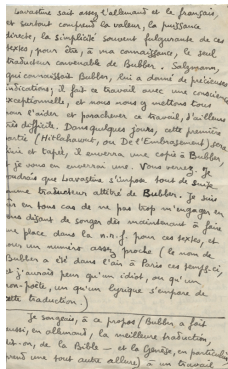 Lavastine sait assez l'allemand et le français,
et surtout comprend la valeur, la puissance
directe, la simplicité souvent fulgurante de ces
textes, pour être, à ma connaissance, le seul
traducteur convenable de Bubber. Salzmann,
qui connaissait Bubber, lui a donné de précieuses
indications; il fait ce travail avec une conscience
exceptionnelle, et nous nous y mettons tous
pour l'aider et parachever ce travail, d'ailleurs
très difficile. Dans quelques jours, cette première
partie (Hitlahawut, ou De l'Embrasement) sera
finie et tapée, il enverra une copie à Bubber,
je vous en enverrai une. Vous verrez. Je
voudrais que Lavastine s'impose tout de suite
comme traducteur attitré de Bubber. Je suis
en tous cas de ne pas trop m'engager en
vous disant de songer dès maintenant à faire
une place dans la n.r.f. pour ces textes, et
pour un numéro assez proche (le nom de
Bubber a été dans l'air à Paris ces temps-ci,
et j'aurais peur qu'un idiot, ou qu'un
non-poète, un qu'un lyrique s'empare de
cette traduction.)
Je songeais, à ce propos (Bubber a fait
aussi, en allemand, la meilleure traduction,
dit-on, de la Bible – et la Genèse, en particulier
prend une tout autre allure) à un travail